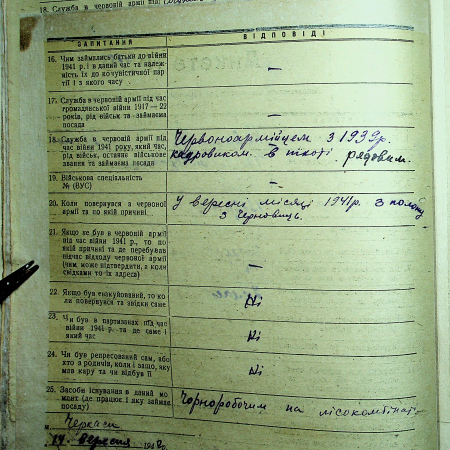 18. Служба в червоній армії під
ЗАПИТАННЯ
ВІДПОВІДІ
16. Чим займались батьки до війни
1941 р. і в даний час та належ-
ність їх до комуністичної пар-
тії і з якого часу
—
17. Служба в червоній армії під час
громадянської війни 1917—22
років, рід військ та займаєма
посада
—
18. Служба в червоній армії під
час війни 1941 року, який час,
рід військ, останнє військове
звання та займаєма посада
Червоноармійцем з 1939р.
кадровиком. В піхоті рядовим.
19. Військова спеціальність
№ (ВУС)
—
20. Коли повернувся з червоної
армії та по якій причині
У вересні місяці 1941р. з полону
з Черновиць.
21. Якщо не був в червоній армії
під час війни 1941 р., то по
якій причині та де перебував
підчас відходу червоної армії
(чим може підтвердити, а коли
свідками то їх адреса)
—
22. Якщо був евакуйований, то ко-
ли повернувся та звідки саме
Ні
23. Чи був в партизанах під час
війни 1941 р. та де саме і
який час
Ні
24. Чи був репресований сам, або
хто з родичів, коли і защо, яку
мав кару та чи відбув її
Ні
25. Засоби існування в даний мо-
мент (де працює і яку займає
посаду)
Чорноробочим на лісокомбінаті
м. Черкаси
"14" вересня 194 р.